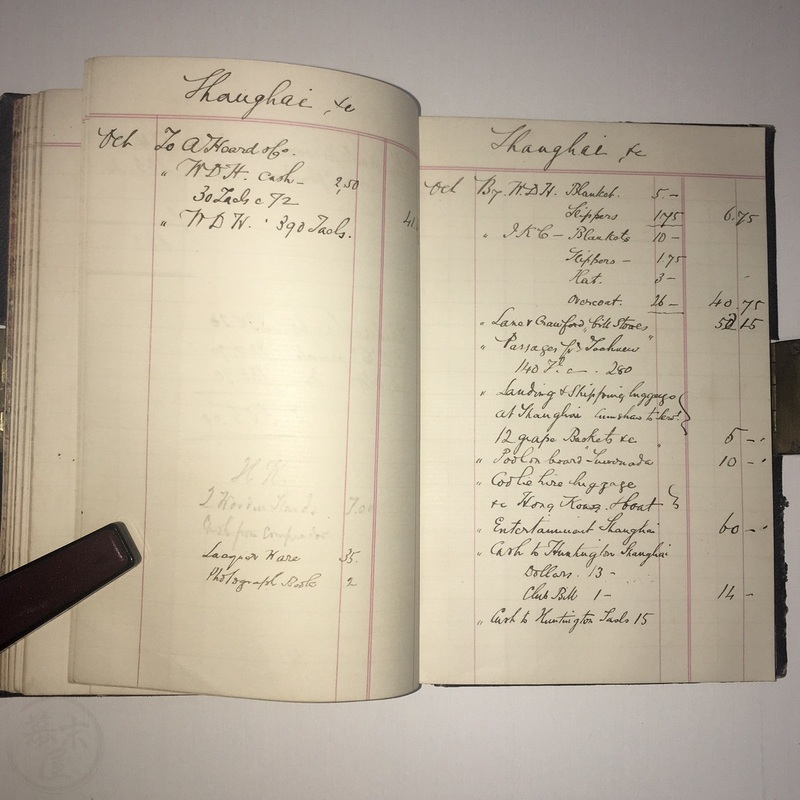 Shanghai &c
Oct To A Heard & Co.
" W.D.H. Cash - 2,50
30 Taels c 72
" W.D.H. 390 Taels. 41
H.K.
2 Wooden 7.00
Cash from Compradore
Lacquer Ware 35.
Photograph Book 2
Shanghai &c
Oct By W.D.H. Blanket. 5.-
Slippers 1.75 6.75
" J.K.C - Blankets 10 -
Slippers - 1.75
Hat. 3 -
Overcoat. 26 - 40.75
" Lane & Crawford, bill Stores 50 15
" Passages pr
140 c - 280
" Landing & Shipping luggage
at Shanghai Cumshaw to
12 grape Baskets &c 5 -
" Pool on board 10 -
" Coolie hire luggage
&c Hong Kong. & boat
" Entertainment Shanghai 60 -
" Cash to Huntington Shanghai
Dollars. 13 -
Club Bill 1 - 14 -
" Cash to Huntington Taels 15
幕末屋